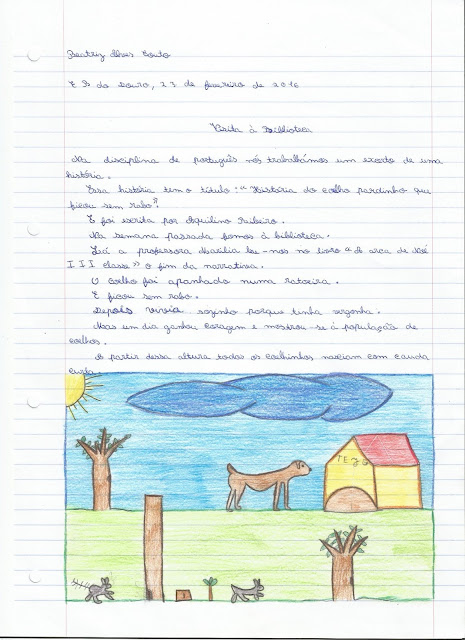 Beatriz Alves Couto
E B do Douro, 23 de fevereiro de 2016
Visita à Biblioteca
Na disciplina de português nós trabalhámos um excerto de uma
história.
Essa história tem o título: "História do coelho pardinho que
ficou sem rabo".
E foi escrita por Aquilino Ribeiro.
Na semana passada fomos à biblioteca.
Lá a professora Marília leu-nos no livro "A arca de Noé
III classe" o fim da narrativa.
O Coelho foi apanhado numa ratoeira.
E ficou sem rabo.
Depois vivia sozinho porque tinha vergonha.
Mas um dia ganhou coragem e mostrou-se à população de
coelhos.
A partir dessa altura todos os coelhinhos nasciam com cauda
curta.